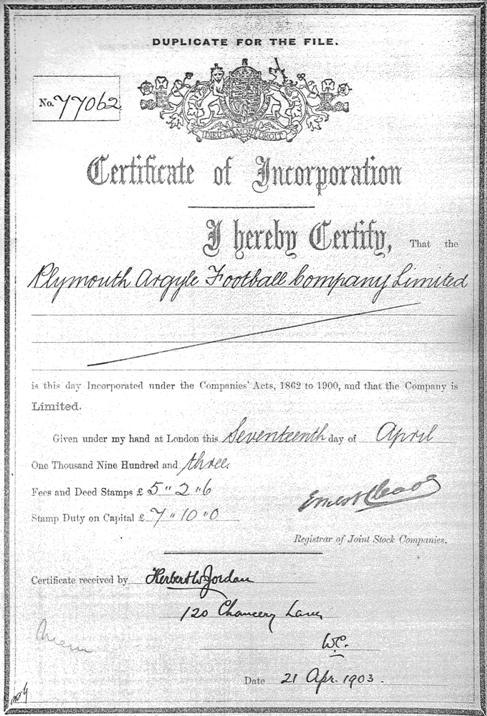 DUPLICATE FOR THE FILE.
No. 77062
Certificate of Incorporation
I hereby Certify, That the
Plymouth Argyle Football Company Limited
is this day Incorporated under the Companies' Acts, 1862 to 1900, and that the Company is
Limited.
Given under my hand at London this Seventeenth day of April
One Thousand Nine Hundred and three.
Fees and Deed Stamps £ 5"2"6
Stamp Duty on Capital £ 7"10"0
Ernest Cleave
Registrar of Joint Stock Companies.
Certificate received by Herbert W Jordan
120 Chancery Lane
W.C.
Date 21 Apr. 1903.